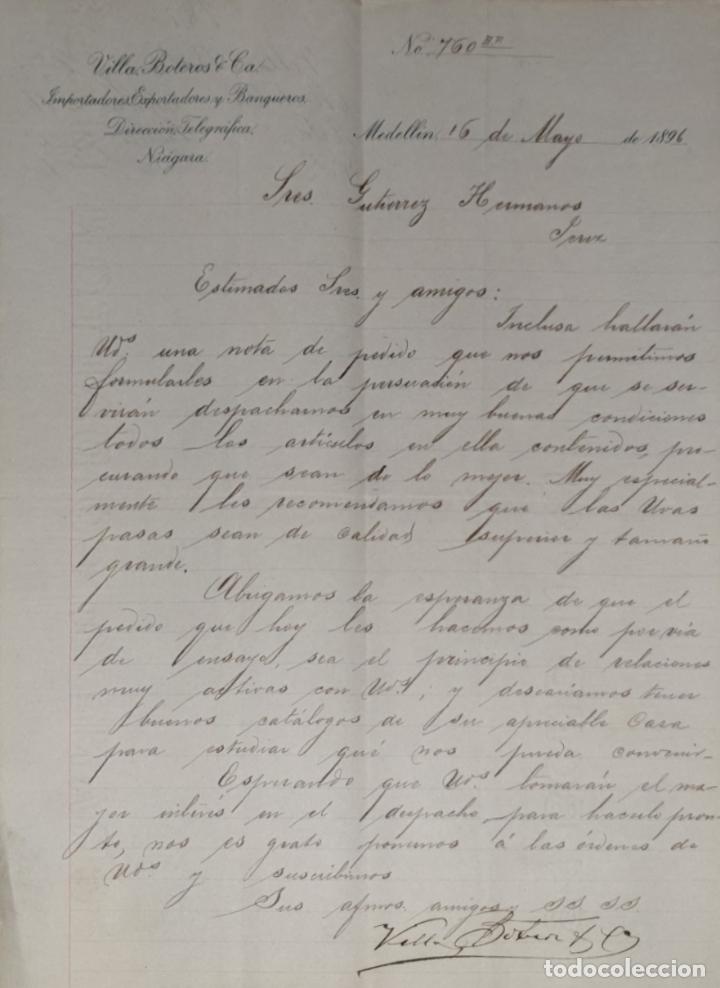 No. 760
Villa, Boteros & Ca.
Importadores, Exportadores y Banqueros.
Dirección Telegráfica,
Niágara.
Medellín, 16 de Mayo de 1896
Sres. Gutierrez Hermanos
Jerez
Estimados Sres. y amigos:
Inclusa hallarán
Uds. una nota de pedido que nos permitimos
formularles en la persuación de que se ser-
virán despacharnos en muy buenas condiciones
todos los artículos en ella contenidos, pro-
curando que sean de lo mejor. Muy especial-
mente les recomendamos que las Uvas
pasas sean de calidad superior y tamaño
grande.
Abrigamos la esperanza de que el
pedido que hoy les hacemos como por vía
de ensayo, sea el principio de relaciones
muy activas con Uds.; y deseariamos tener
buenos catálogos de su apreciable Casa
para estudiar qué nos pueda convenir.
Esperando que Uds. tomarán el ma-
yor interés en el despacho, para hacerlo pron-
to, nos es grato ponernos á las órdenes de
Uds. y suscribirnos
Sus afmos. amigos y SS. SS.
Villa, Boteros & Ca
todocoleccion